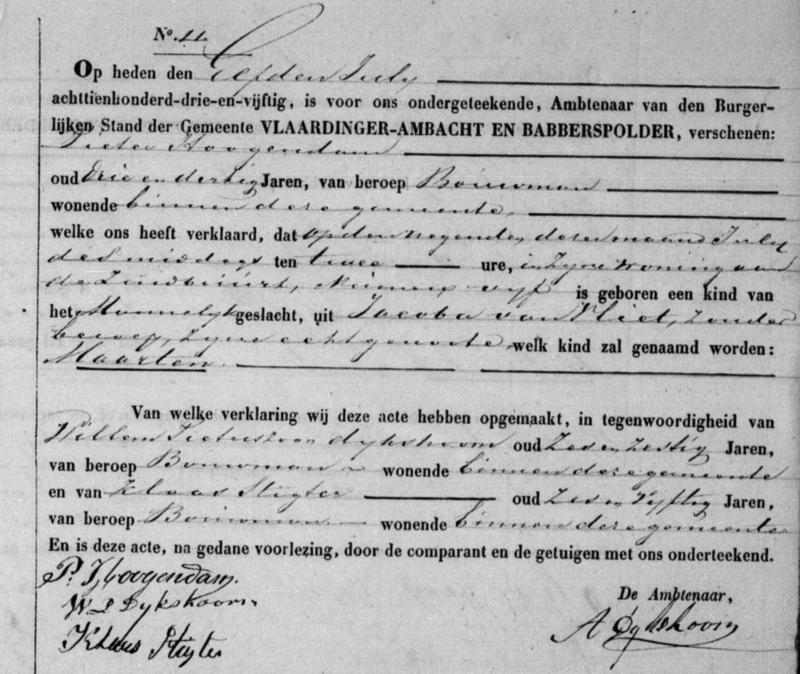 No. 11.
Op heden den Elfden July
achttienhonderd-drie-en-vijftig, is voor ons ondergeteekende, Ambtenaar van den Burger-
lijken Stand der Gemeente VLAARDINGER-AMBACHT EN BABBERSPOLDER, verschenen:
Pieter Hoogendam
oud drie en dertig Jaren, van beroep Bouwman
wonende binnen deze gemeente,
welke ons heeft verklaard, dat op den negenden dezer maand July
des middags ten twee ure, in zyne woning aan
de Zuidbuurt, Numero vyf is geboren een kind van
het Mannelyk geslacht, uit Jacoba van Vliet, zonder
beroep, zyne echtgenoote, welk kind zal genaamd worden:
Maarten.
Van welke verklaring wij deze acte hebben opgemaakt, in tegenwoordigheid van
Willem Pieterszoon Dykshoorn oud Zes en zestig Jaren,
van beroep Bouwman wonende binnen deze gemeente
en van Klaas Stigter oud Zes en Vyftig Jaren,
van beroep Bouwman wonende binnen deze gemeente
En is deze acte, na gedane voorlezing, door de comparant en de getuigen met ons onderteekend.
P. Hoogendam.
W P Dykshoorn
De Ambtenaar,
Klaas Stigter
A Dykshoorn